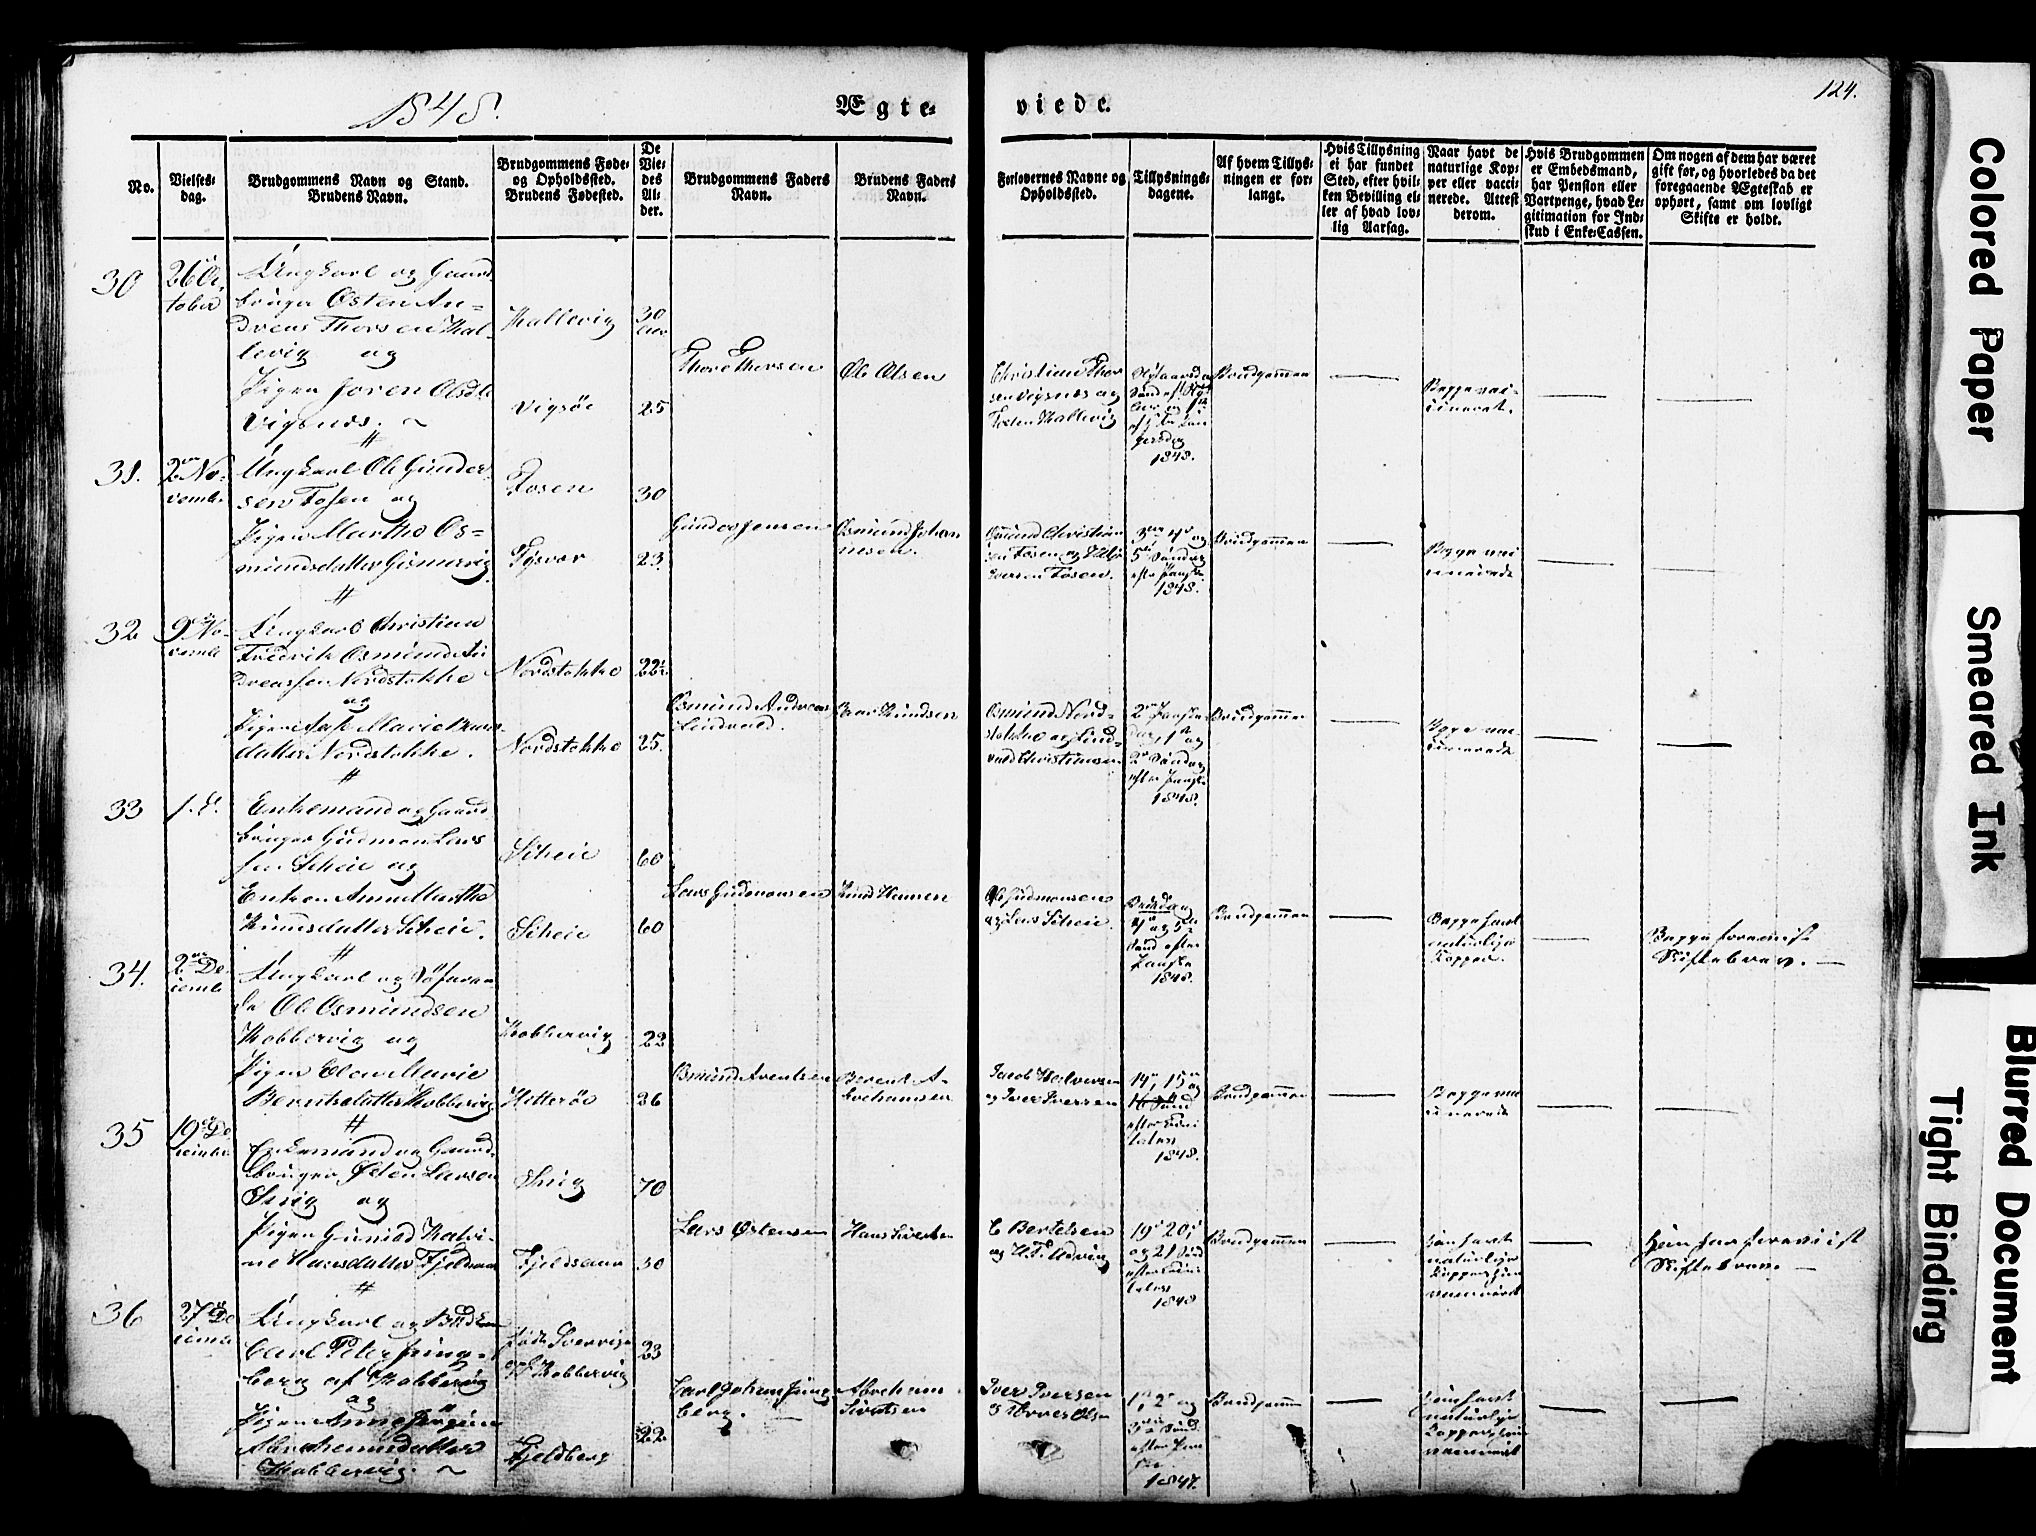 1848.
Ægte-
viede.
124.
No.
Vielses-
dag.
Brudgommens Navn og Stand.
Brudens Navn.
Brudgommens Føde-
og Opholdssted.
Brudens Fødested.
De
Vie-
des
Al-
der.
Brudgommens Faders
Navn.
Brudens Faders
Navn.
Forlovernes Navne og
Opholdssted.
Tillysnings-
dagene.
Af hvem Tillys-
ningen er for-
langt.
Hvis Tillysning
ei har fundet
Sted, efter hvil-
ken Bevilling el-
ler af hvad lov-
lig Aarsag.
Naar havt de
naturlige Kop-
per eller vacci-
nerede. Attest
derom.
Hvis Brudgommen
er Embedsmand,
har Pension eller
Vartpenge, hvad Le-
gitimation for Ind-
skud i Enke-Cassen.
Om nogen af dem har været
gift før, og hvorledes da det
foregaaende Ægteskab er
ophørt, samt om lovligt
Skifte er holdt.
30
26 Oc-
tober
Ungkarl og Gaard-
bruger Osten An-
dreas Thorsen Kal-
levig og
Pigen Joren Olsdtr
Vigsnes.
Kallevig
Vigsöe
30
Aar
25
Thore Thorsen
Ole Olsen
Christian Thor
sen Vigsnes og
Osten Kallevig
1848.
Brudgommen
Begge vac-
cineret.
31.
2den No-
vembr
Ungkarl Ole Gunder-
sen Fosen og
Pigen Martha Os-
mundsdatter Gismervig
Fosen
Tysvær
30
23.
Gunder Jensen
Osmund Johan
nesen.
Osmund Christian
sen Fosen og
Iversen Fosen.
3die, 4de og
5te Søndag
efter Paaske
1848.
Brudgommen
Begge vac-
cinerede
32
9de No-
vembr
Ungkarl Christian
Fredrik Osmund An
dreassen Nordstokke
og
Pigen Marie
datter Nordstokke.
Nordstokke
Nordstokke
22½
25.
Osmund Andreas
Lindvald.
Knudsen
Osmund Nord-
stokke og Lind-
vald Christiansen
2den Paaske
dag, 1ste og
2den Søndag
efter Paaske
1848.
Brudgommen
Begge vac-
cinerede
33
Enkemand og Gaard
bruger Gudmon Lars
sen Scheie og
Enken Anne Martha
Knudsdatter Scheie.
Scheie
Scheie
60
60
Lars Gudmonsen
Knud Hansen
Ole Gudmonsen
og Lars Scheie.
Bededag
4de og 5te
Sønd efter
Paaske
1848.
Brudgommen
Begge havt
naturlige
Kopper.
Begge foreviist
Skiftebrev.
34.
2den De-
cembr
Ungkarl og Søfaren-
de Ole Osmundsen
Kobbervig og
Pigen Elen Marie
Berntsdatter Kobbervig
Kobbervig
Hitterøe
22
26
Osmund Arentsen
Bernt A-
brahamsen
Jacob Halvorsen
og Iver Iversen
14de, 15de og
16 Sønd
efter Trini
tatis
1848.
Brudgommen
Begge vac-
cinerede
35
19de De-
cember
Enkemand og Gaard-
bruger Østen Larsen
Snig og
Pigen Gunild Katri-
ne Hansdatter Fjeldsaae
Snig
Fjeldsaae
70
30
Lars Østensen
Hans Sivertsen
C Bertelsen
og
19de 20de
og 21 Sønd
efter Trini
tatis
1848
Brudgommen
han havt
naturlige
Kopper hun
vaccineret
Han har foreviist
Skiftebrev.
36
27de De-
cembr
Ungkarl og Bødker
Carl Peter Ljung-
berg af Kobbervig
og
Pigen Anne Jørgine
Abrahamsdatter
Kobbervig.
født Sverrige
Kobbervig
Fjeldberg
23
22
Carl Johan Ljung
berg.
Abraham
Sivertsen
Iver Iversen
&
1ste, 2den og
3die Sønd
efter
1847.
Brudgommen
han havt
naturlige
Kopper, hun
vaccineret
Colored Paper
Smeared Ink
Blurred Document
Tight Binding